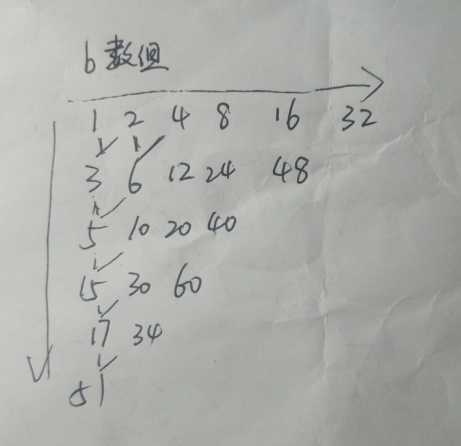 b数组
1 2 4 8 16 32
3 6 12 24 48
5 10 20 40
15 30 60
17 34
51